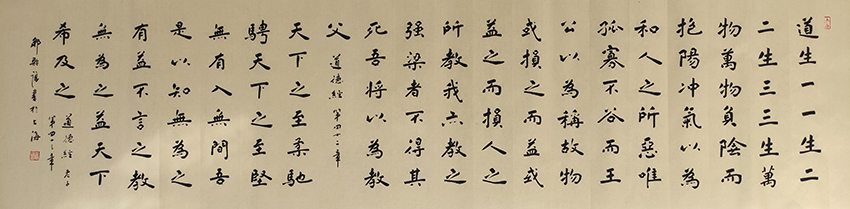 道生一一生二
二生三三生萬
物萬物負陰而
抱陽冲氣以為
和人之所惡唯
孤寡不谷而王
公以為稱故物
或損之而益或
益之而損人之
所教我亦教之
強梁者不得其
死吾將以為教
父
道德經第四十二章
天下之至柔馳
騁天下之至堅
無有入無間吾
是以知無為之
有益不言之教
無為之益天下
希及之
道德經 老子
第四十三章
書於上海